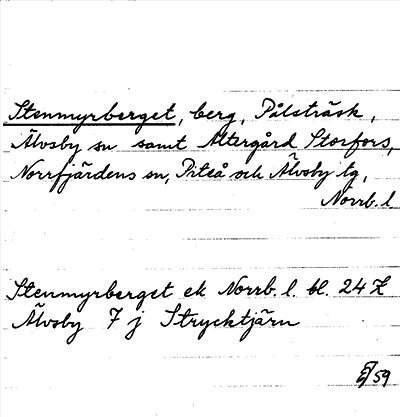 Stenmyrberget, berg, Pålsträsk,
Älvsby sn samt Altergård Storfors,
Norrfjärdens sn, Piteå och Älvsby tg,
Norrb. l.
Stenmyrberget ek Norrb. l. bl. 24 Z
Älvsby 7 j Strycktjärn
59